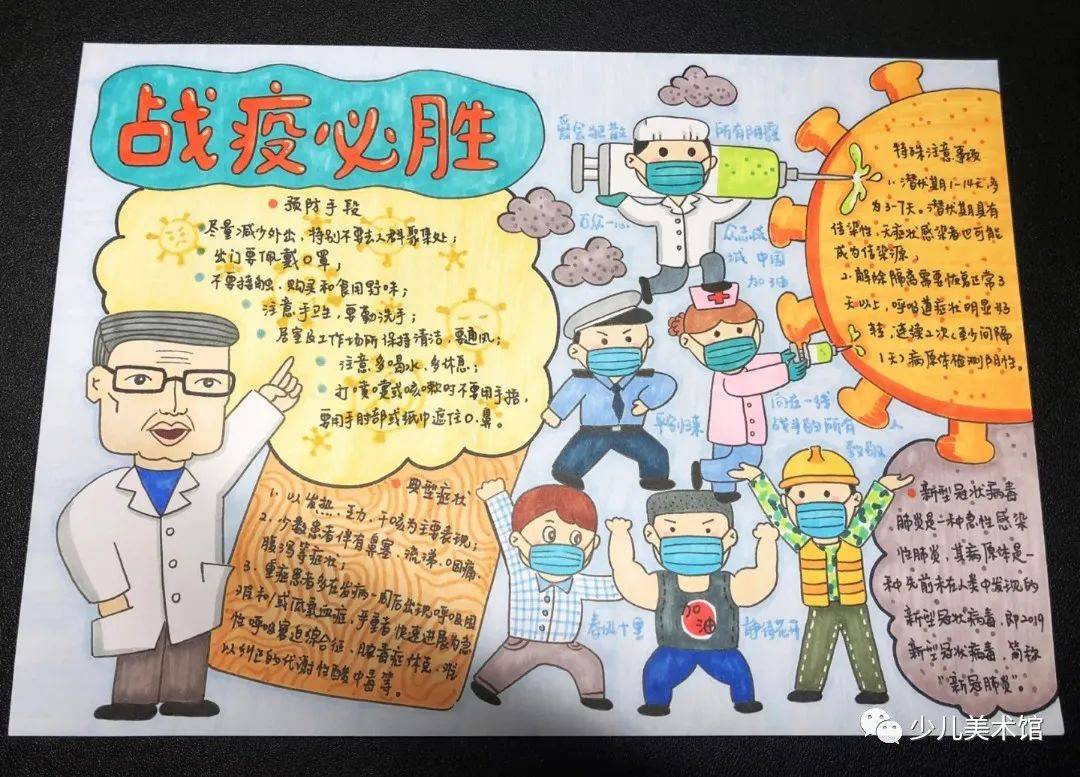 战疫必胜
预防手段
尽量减少外出，特别不要去人群聚集处；
出门要佩戴口罩；
不要接触、购买和食用野味；
注意手卫生，要勤洗手；
居室及工作场所保持清洁，要通风；
注意多喝水，多休息；
打喷嚏或咳嗽时不要用手捂，
要用手肘部或纸巾遮住口、鼻。
典型症状
1、以发热、乏力、干咳为主要表现；
2、少数患者伴有鼻塞、流涕、咽痛、
腹泻等症状；
3、重症患者多在发病一周后出现呼吸困
难和/或低氧血症，严重者快速进展为急
性呼吸窘迫综合征、脓毒症休克、难
以纠正的代谢性酸中毒等。
爱会驱散
所有阴霾
万众一心
众志成
城 中国
加油
平安归来
向在一线
战斗的所有人
致敬
加
油
春风十里
静待花开
特殊注意事项
1、潜伏期1-14天，多
为3-7天。潜伏期具有
传染性，无症状感染者也可能
成为传染源。
2、解除隔离需要恢复正常3
天以上，呼吸道症状明显好
转，连续2次（至少间隔
1天）病原体检测阴性。
新型冠状病毒
肺炎是一种急性感染
性肺炎，其病原体是一
种先前未在人类中发现的
新型冠状病毒，即2019
新型冠状病毒，简称
"新冠肺炎"。
少儿美术馆